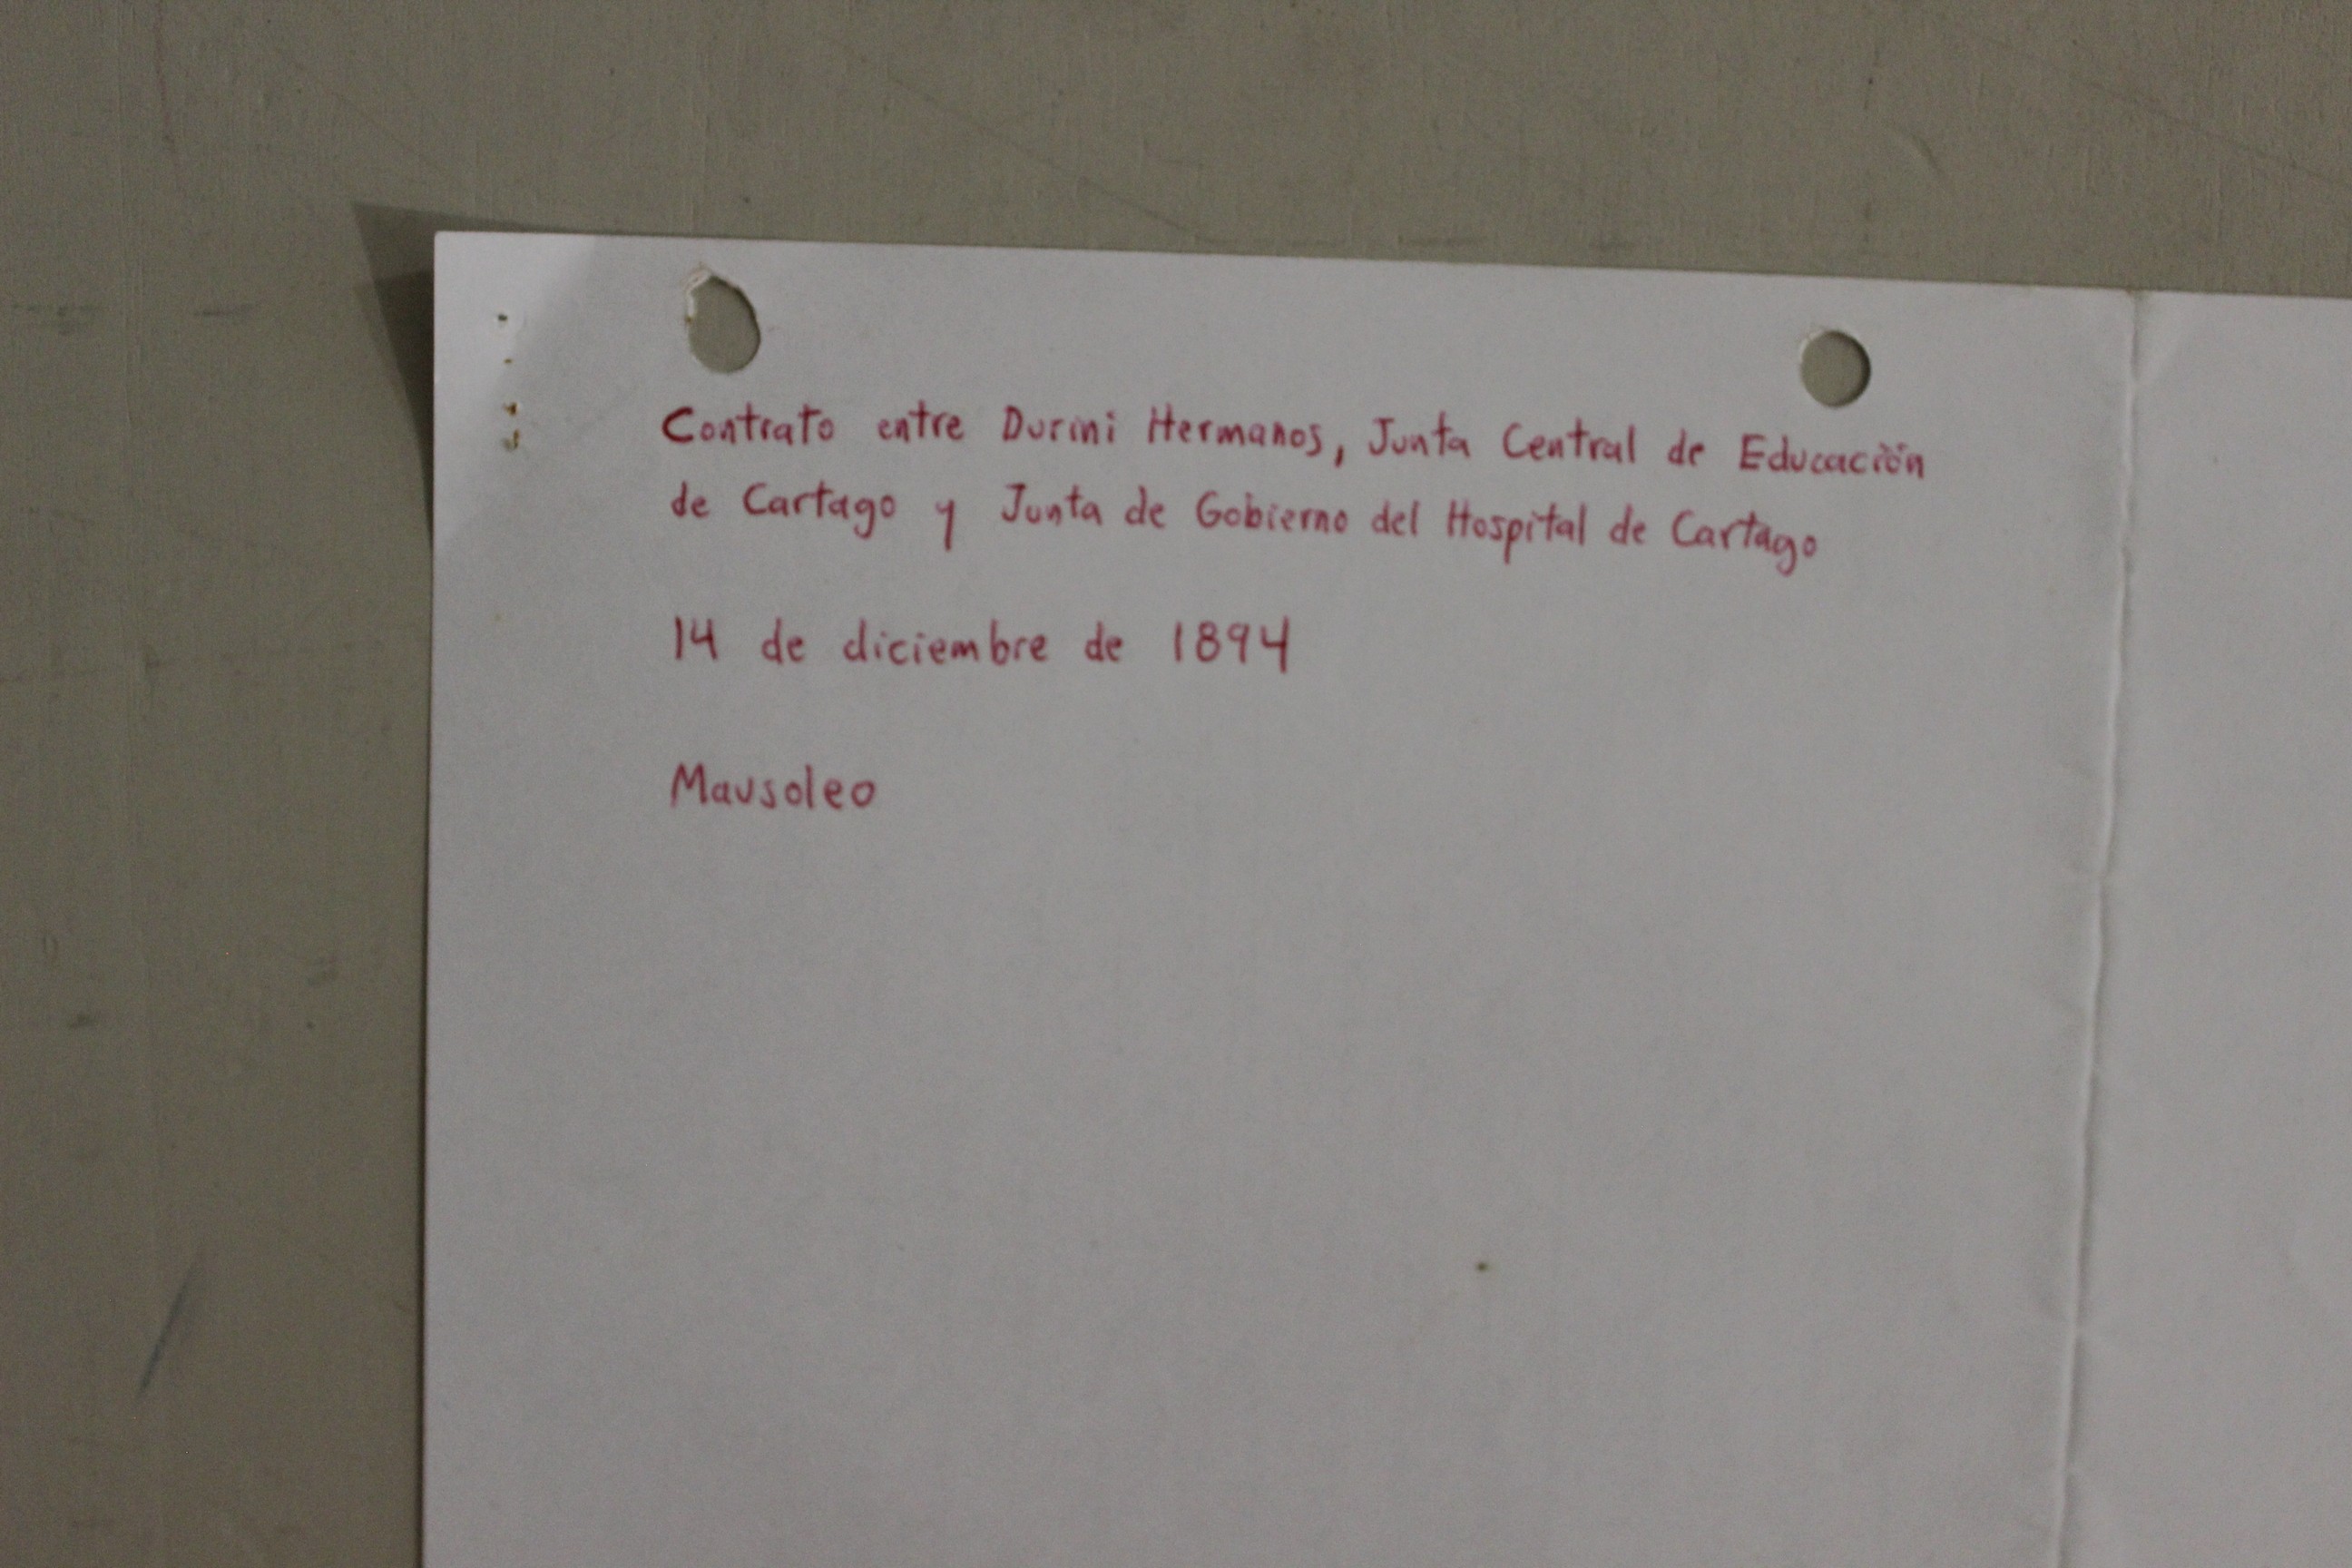 Contrato entre Durini Hermanos, Junta Central de Educación
de Cartago y Junta de Gobierno del Hospital de Cartago
14 de diciembre de 1894
Mausoleo